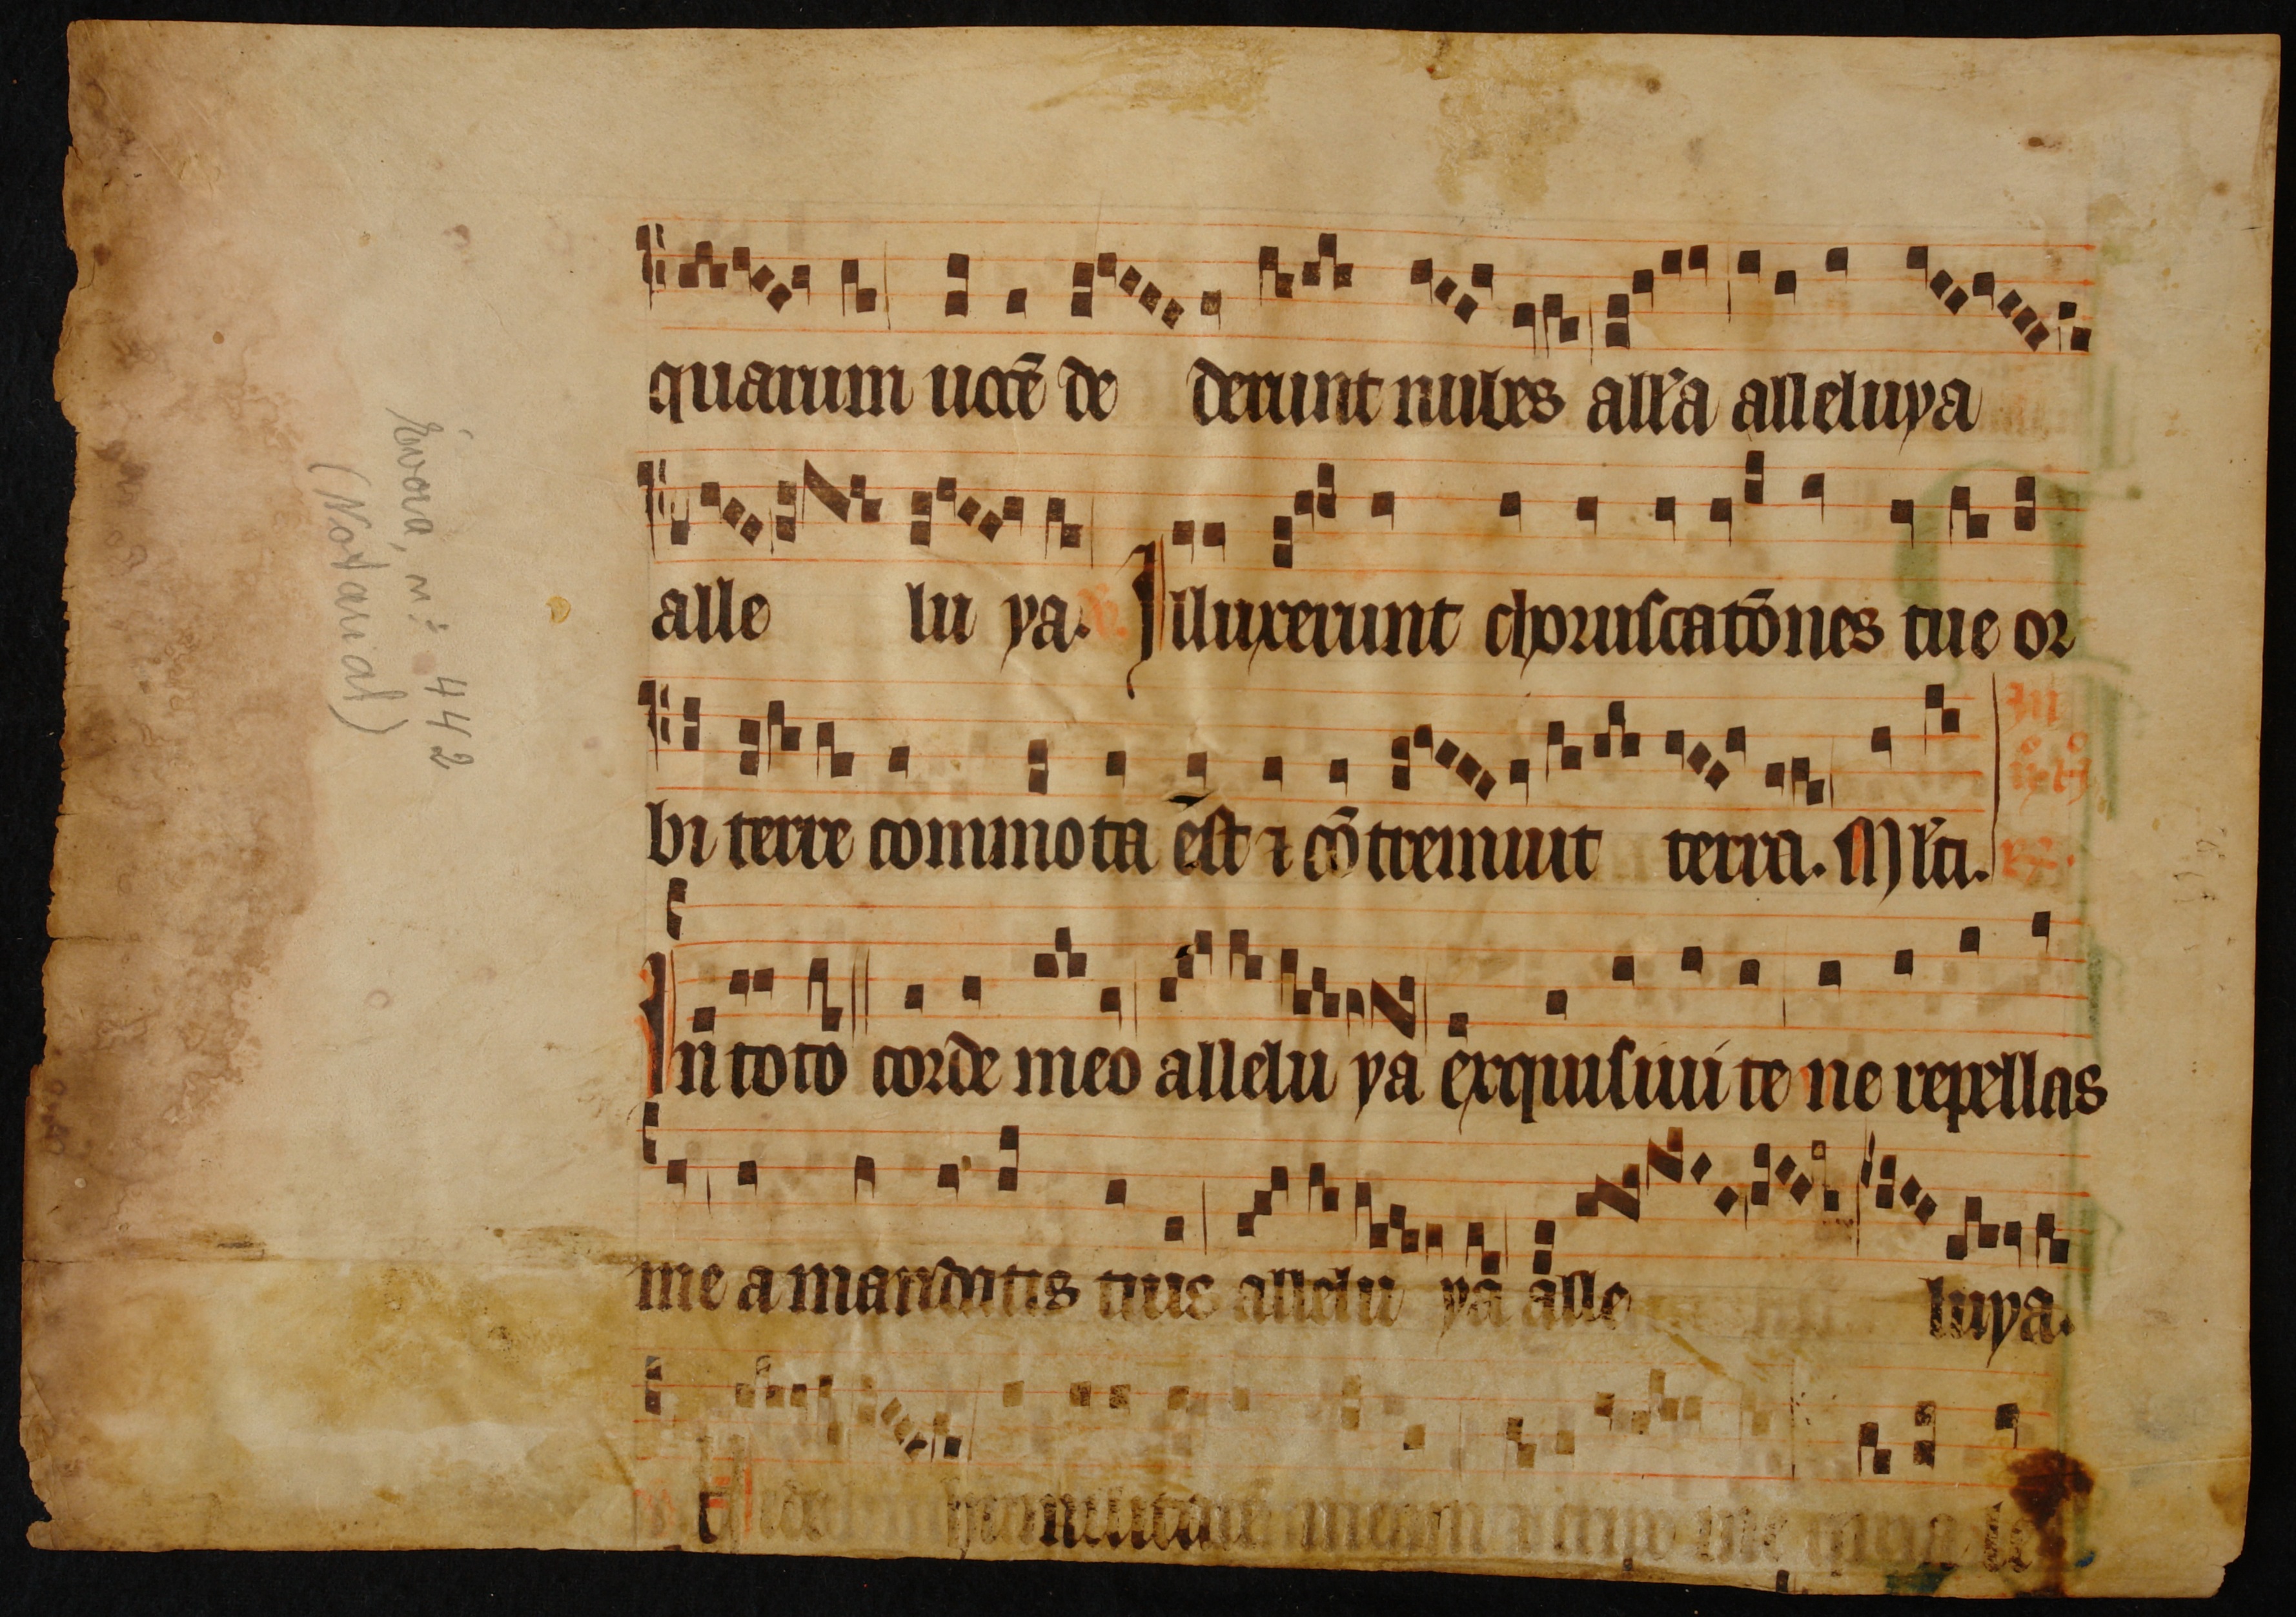 quarum uocē de derunt nubes all'a alleluya
alle lu ya. V. Illuxerunt choruscatōnes tue or
bi terre commota ēst ⁊ cō tremuit terra. Ml'ti.
In
R.
In toto corde meo allelu ya exquisiui te ne repellas
me a mandatis tuis allelu ya alle luya.
humilitatē meam ⁊ eripe me quia le
Évora, nº 442
(Notarial)